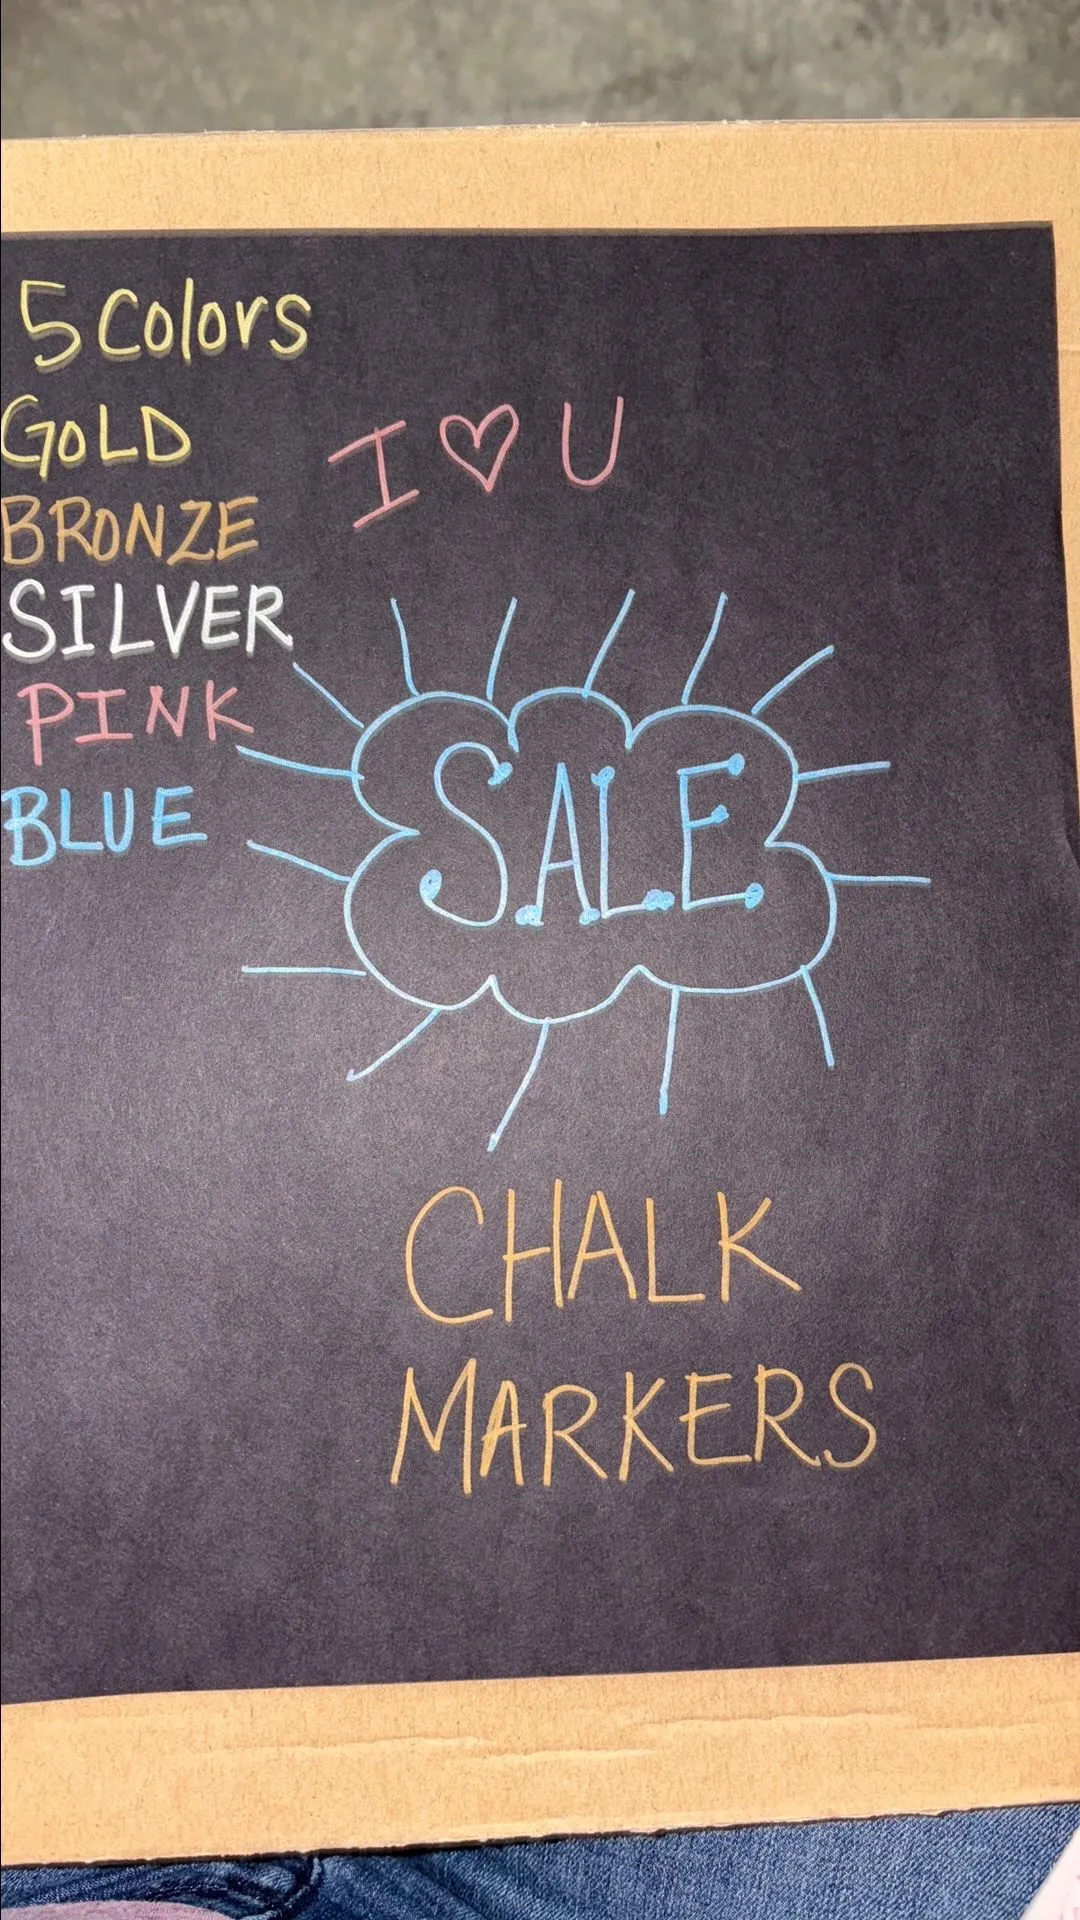 5 Colors
GOLD
BRONZE
SILVER
PINK
BLUE
I ♡ U
SALE
CHALK
MARKERS